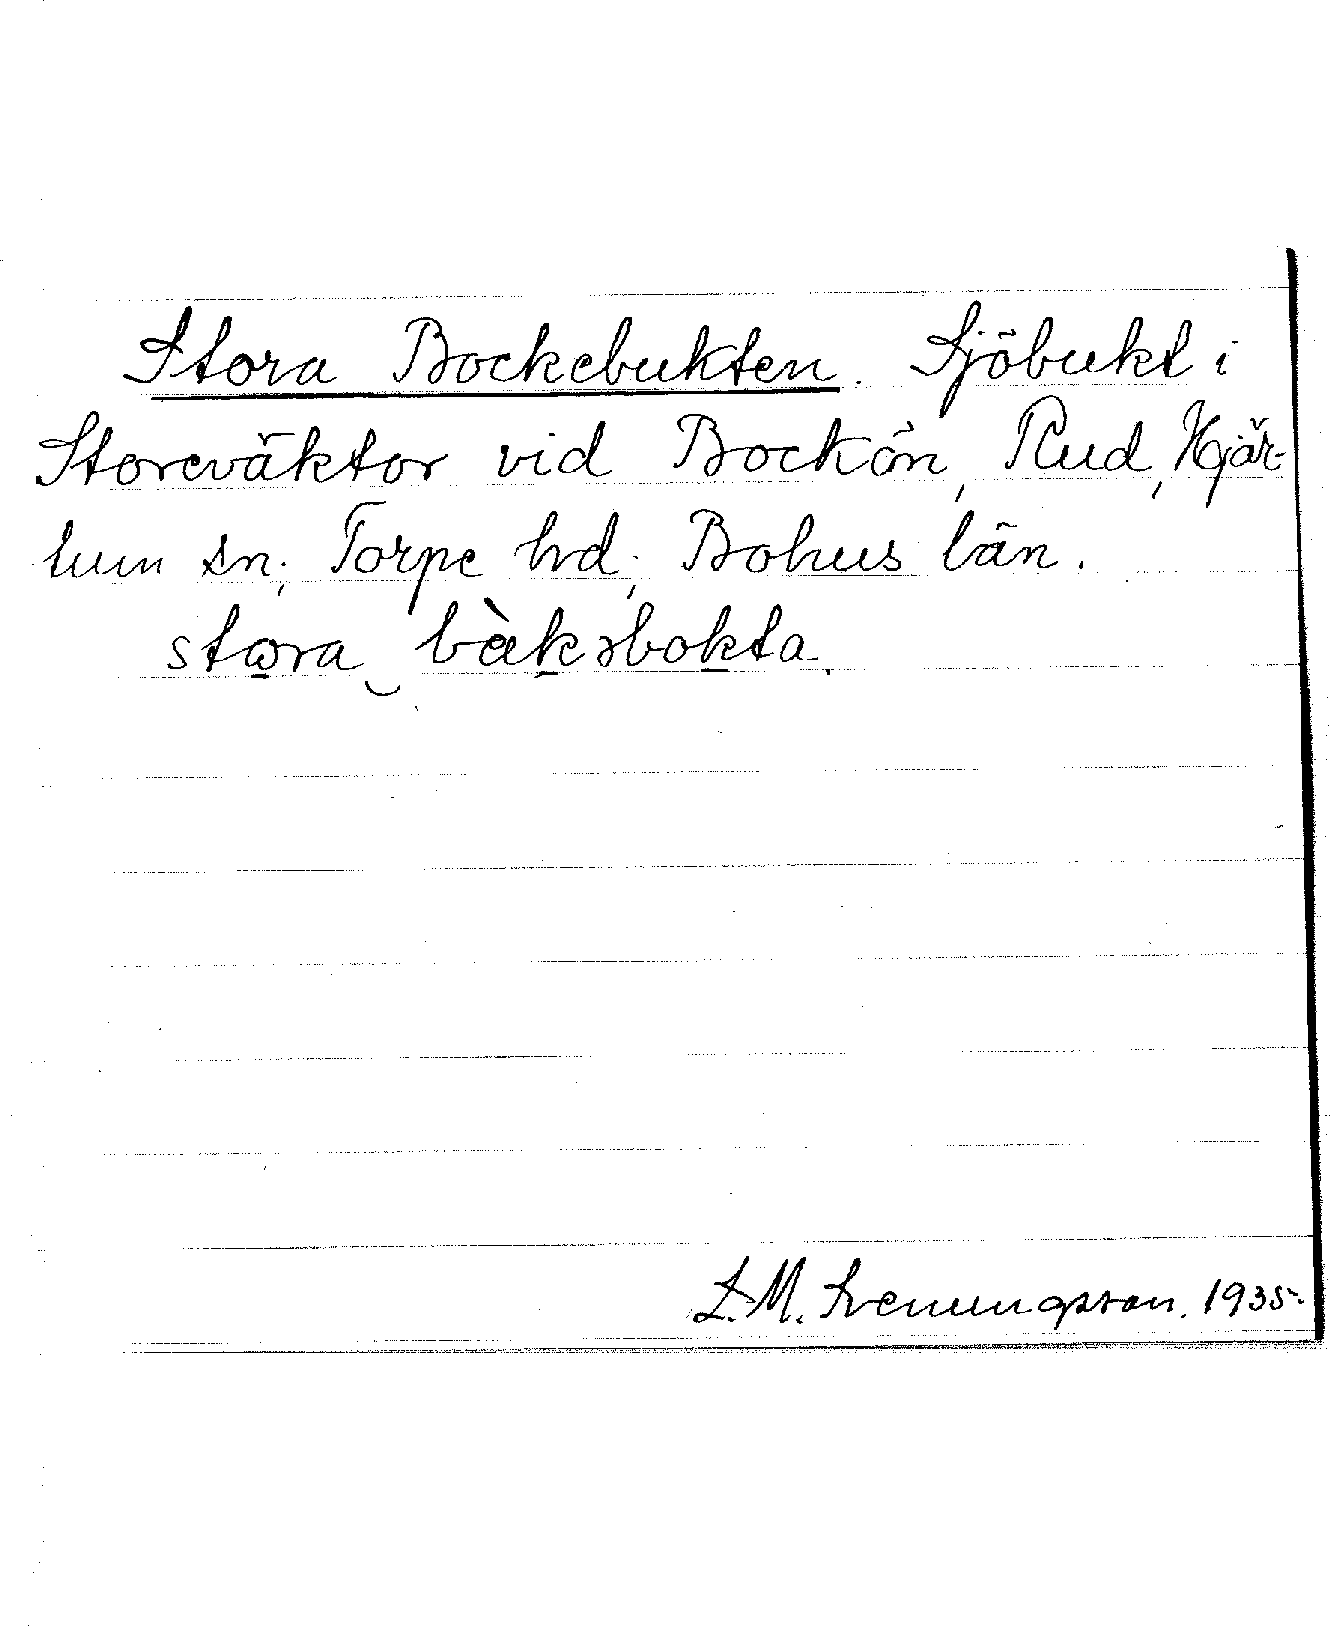 Stora Bockebukten. Sjöbukt i
Storeväktor vid Bockön, Rud, Hjär-
tum sn, Torpe hd, Bohus län.
stora bàkəbokta.
L.M. Svenungsson. 1935.